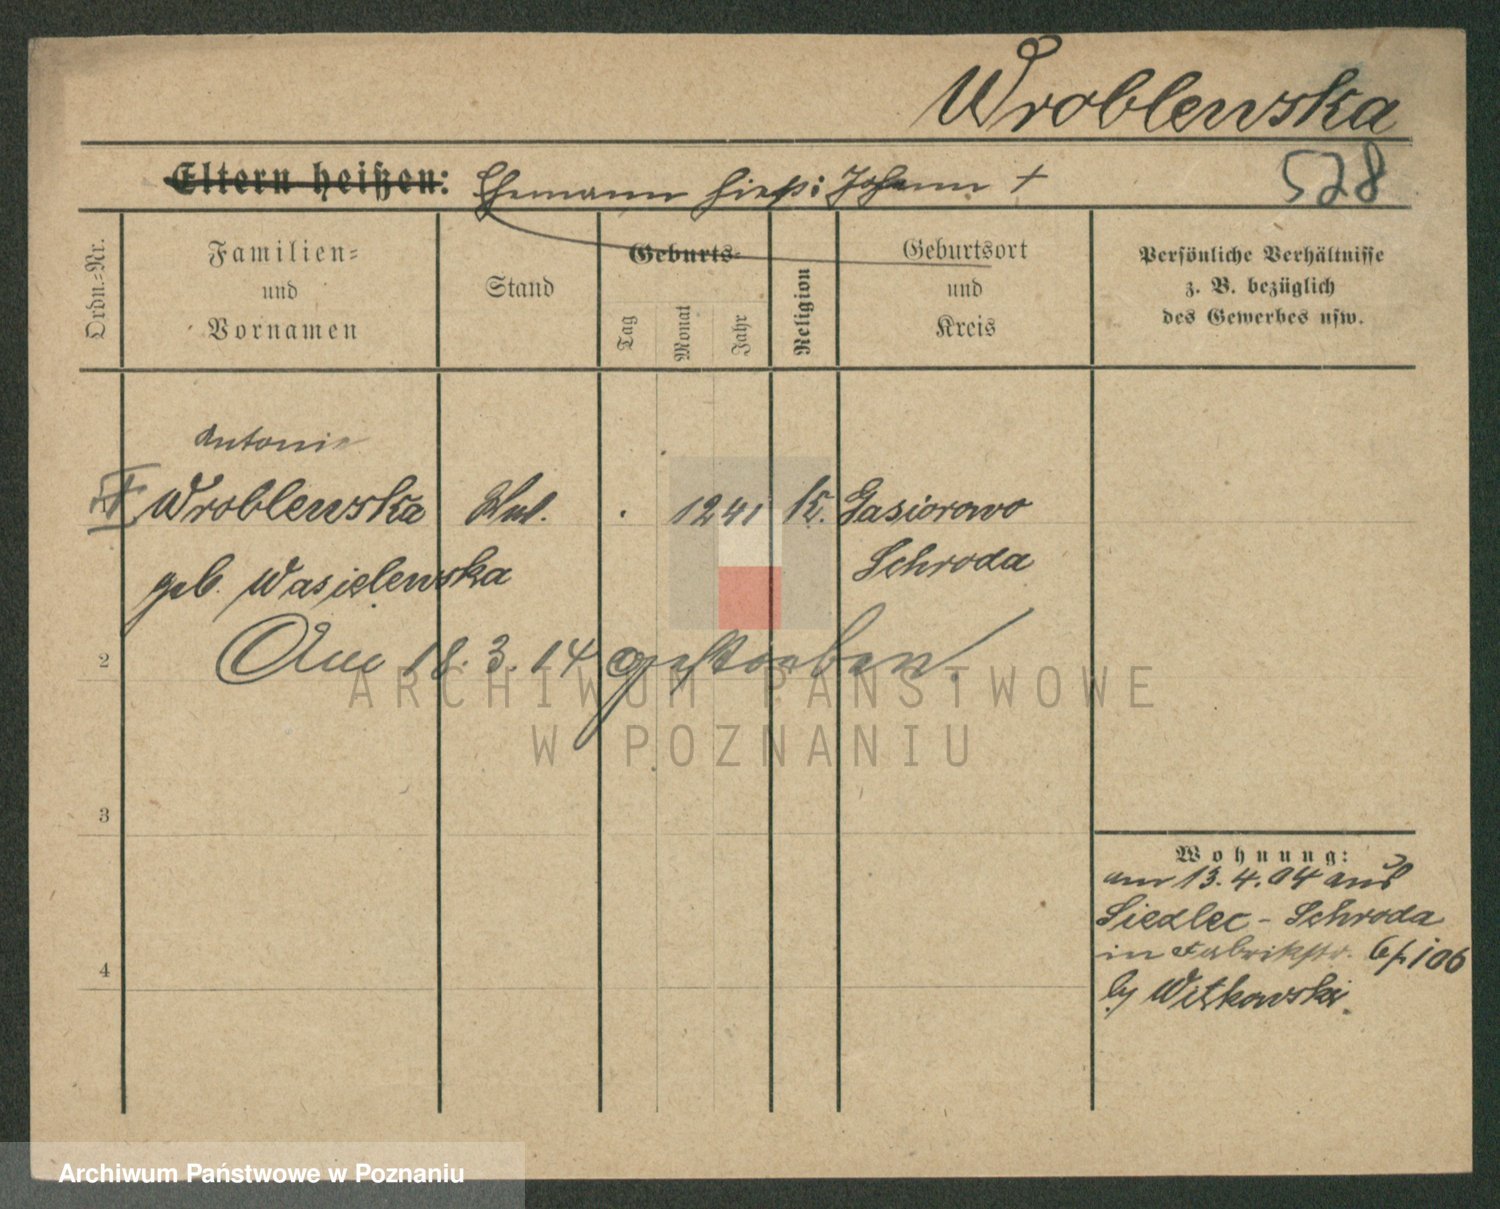 Wroblewska
Eltern heißen: Ehemann hieß: Johann +
528
Ordn.-Nr.
Familien-
und
Vornamen
Stand
Geburts-
Tag
Monat
Jahr
Religion
Geburtsort
und
Kreis
Persönliche Verhältnisse
z. B. bezüglich
des Gewerbes usw.
Antonie
Wroblewska . 12 41 k. Gasiorowo
geb. Wasielewska Schroda
2 Am 18.3.14 gestorben.
3
4
Wohnung:
am 13.4.04 aus
Siedlec - Schroda
in Fabrikstr.
by Witkowski.
ARCHIWUM PAŃSTWOWE
W POZNANIU
Archiwum Państwowe w Poznaniu